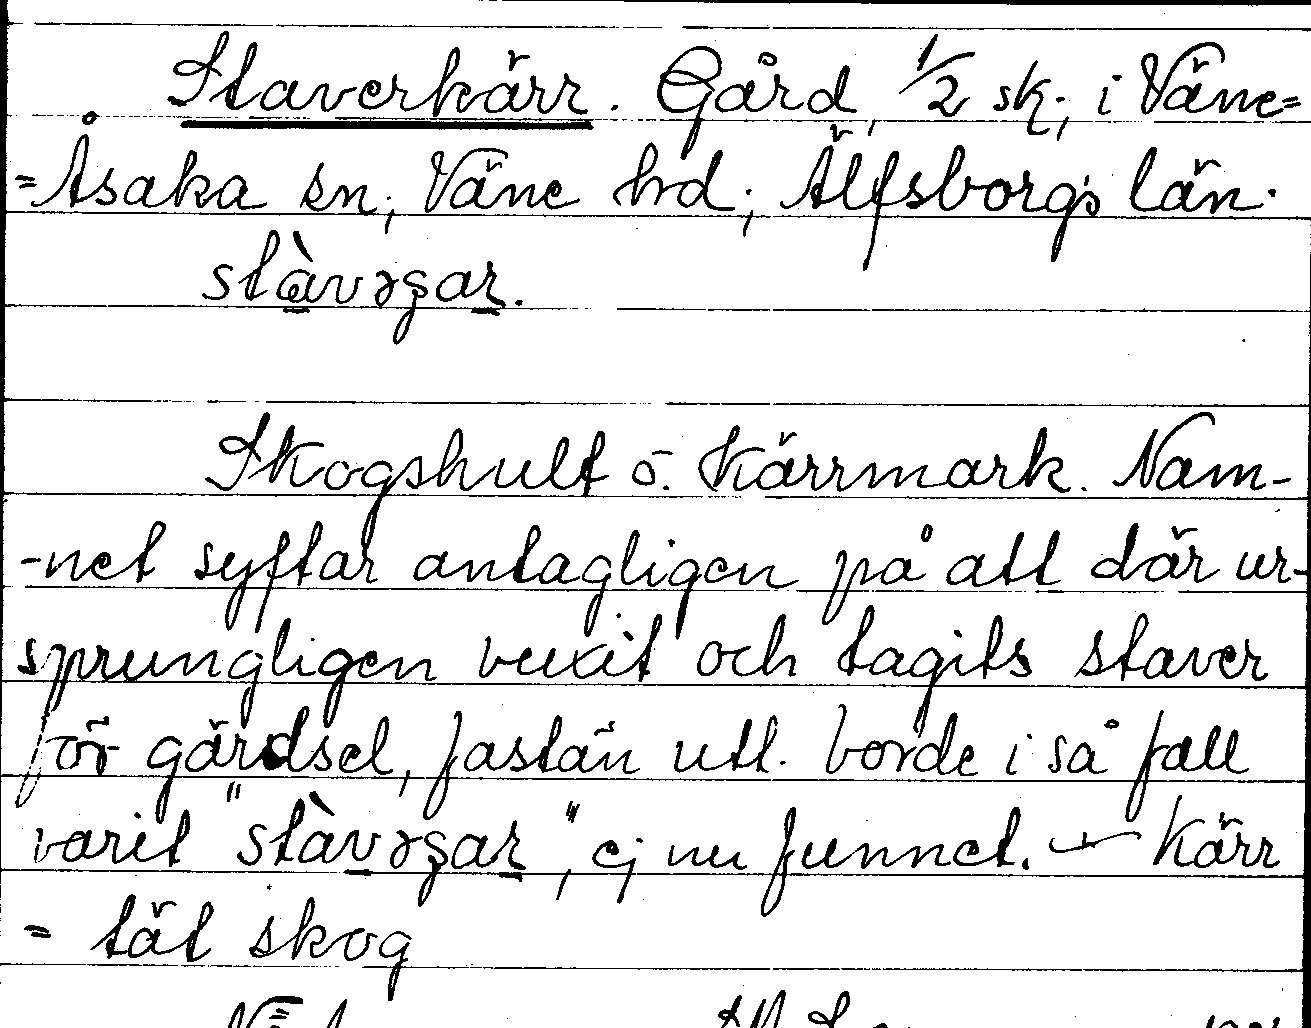 Staverkärr. Gård, 1/2 sk., i Väne=
=Åsaka sn, Väne hd, Älfsborgs län.
stàvəʂar.
Skogshult o. Kärrmark. Nam-
-net syftar antagligen på att där ur-
sprungligen vuxit och tagits staver
för gärdsel, fastän utt. borde i så fall
varit "stàvəʂar", ej nu funnet. — Kärr
= tät skog